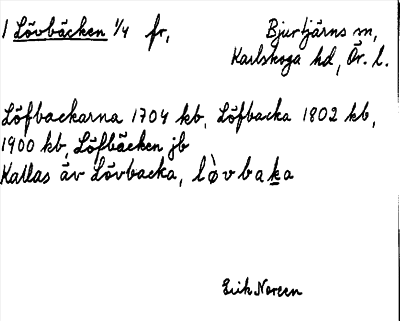 1 Lövbäcken 1/4 fr,
Bjurtjärns sn,
Karlskoga hd, Ör. l.
Löfbackarna 1704 kb, Löfbacka 1802 kb,
1900 kb, Löfbäcken jb
Kallas äv Lövbacka, lø̀vbaka
Erik Noreen